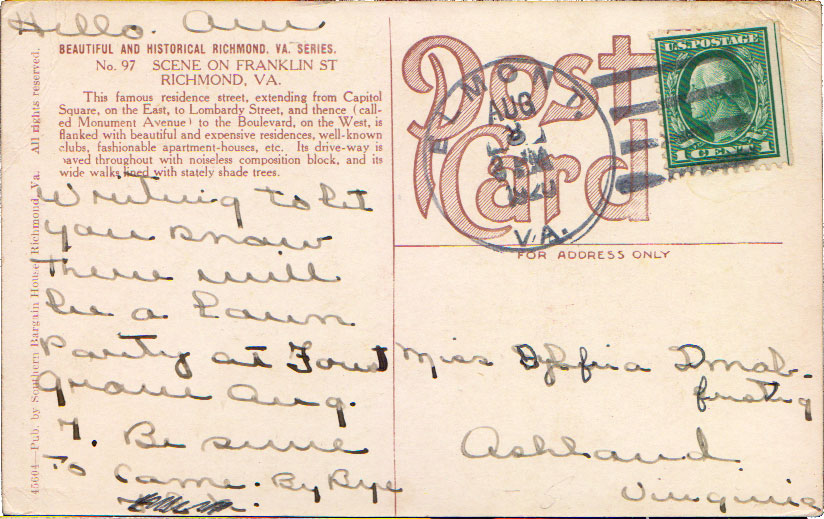 Hello. Ann
BEAUTIFUL AND HISTORICAL RICHMOND. VA. SERIES.
No. 97 SCENE ON FRANKLIN ST
RICHMOND, VA.
This famous residence street, extending from Capitol
Square, on the East, to Lombardy Street, and thence (call-
ed Monument Avenue) to the Boulevard, on the West, is
flanked with beautiful and expensive residences, well-known
clubs, fashionable apartment-houses, etc. Its drive-way is
paved throughout with noiseless composition block, and its
wide walks lined with stately shade trees.
Writing to let
you know
there will
be a Lawn
Party at
Aug.
7. Be sure
to come. By Bye
45604—Pub. by Southern Bargain House, Richmond, Va. All rights reserved.
Post
Card
ELMONT
AUG
1920
VA.
U.S. POSTAGE
1 CENT 1
FOR ADDRESS ONLY
Miss
Ashland
Virginia